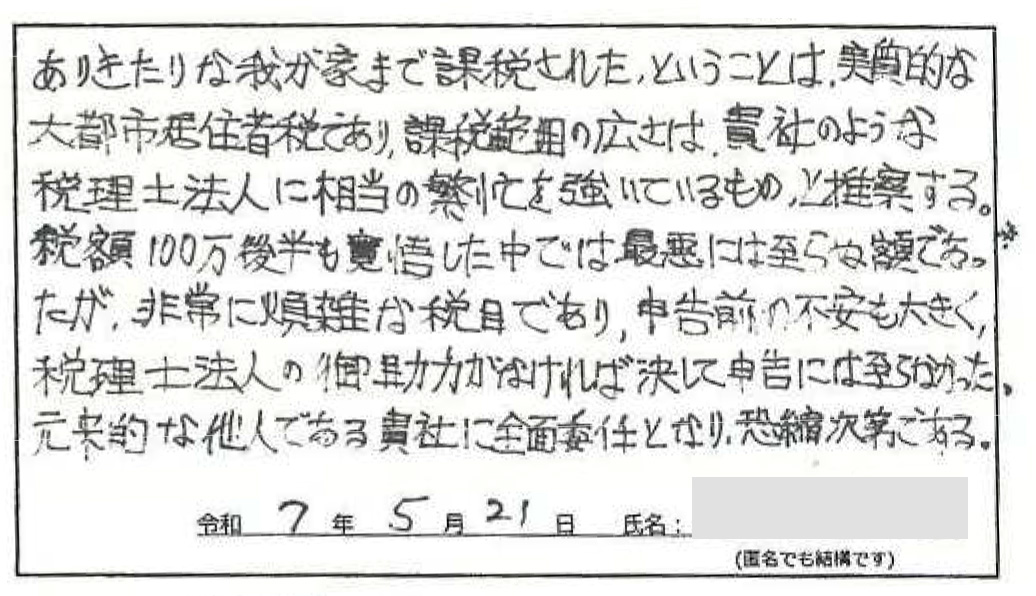 ありきたりな我が家まで課税された、ということは、実質的な
大都市居住者税であり、課税範囲の広さは、貴社のような
税理士法人に相当の繁忙を強いているもの、と推察する。
税額100万後半も覚悟した中では最悪には至らぬ額であっ
たが、非常に煩雑な税目であり、申告前の不安も大きく、
税理士法人の御助力がなければ決して申告には至らなかった。
元来的な他人である貴社に全面委任となり、恐縮次第である。
令和 7 年 5 月 21 日 氏名:
(匿名でも結構です)